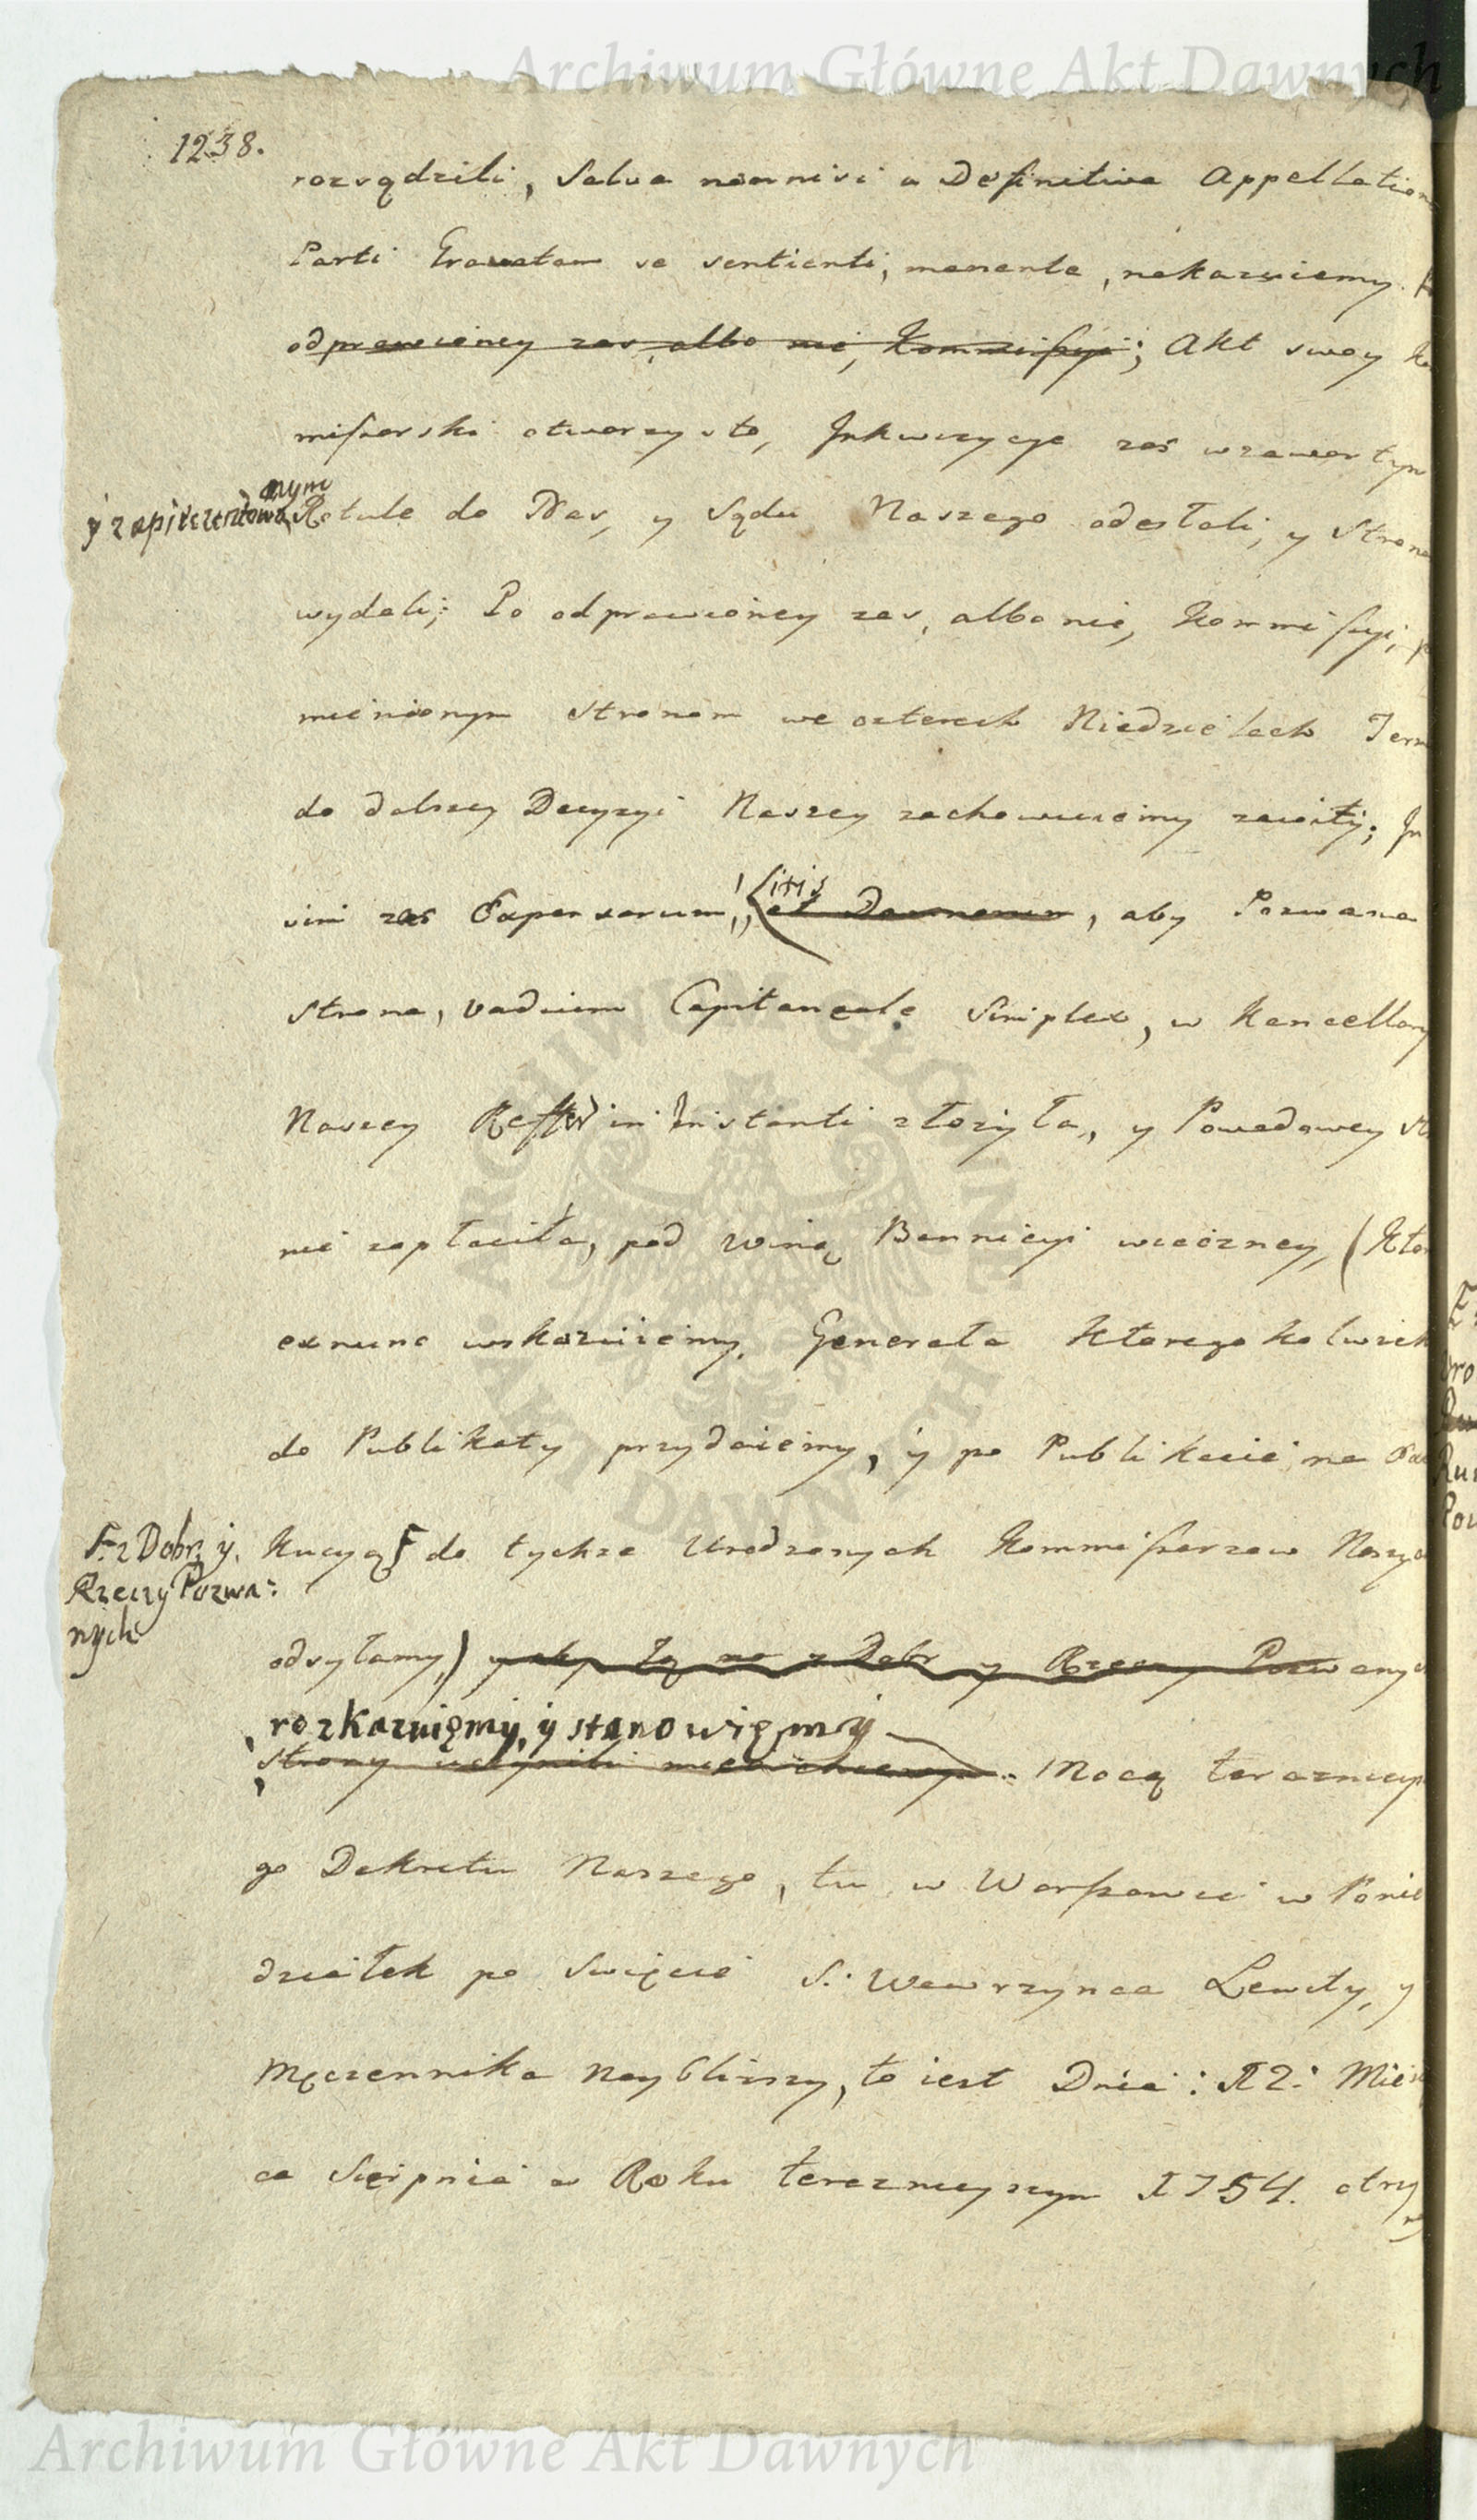 Archiwum Główne Akt Dawnych
1238.
rozsądzili, Salva nonnisi a Definitiva Appellation
Parti Gravatam se sentienti, manente, nakazuiemy.
odprawioney zas, albo nie, Kommissyi; Akt swoy Ko
missarski otworzysto, Inkwizycye zaś w zawartym
y zapieczętowa nym Rotule do Nas, y Sądu Naszego odesłali, y Strono
wydali; Po odprawioney zas, albo nie, Kommissyi,
mienionym Stronom we czterech Niedzielach Term
do dalszey Decyzyi Naszey zachowuiemy zawity; In
sim zas Expensarum, Litis et Damnorum, aby Pozwana
strona, vadium Capitaneale Simplex, w Kancellary
Naszey in Instanti złożyła, y Powodowey st
nie zapłaciła, pod winą Bannicyi wieczney, (Ktor
exnunc wskazuiemy, Generała ktoregokolwiek
do Publikaty przydaiemy, y po Publikacie na Exe
kucyą F do tychże Urodzonych Kommissarzow Naszyc
F. z Dobr, y.
Rzeczy Pozwa:
nych
odsyłamy,) y aby tę na z Dobr y Rzeczy Pozwany
rozkazuięmy, y stanowięmy
strony uczynili mieć chcemy. Mocą teraznieysze
go Dekretu Naszego, tu w Warszawie w Ponie
działek po Swięcie S. Wawrzynca Lewity, y
Męczennika nayblizszy, to iest Dnia: 12: Miesi
ca Sierpnia w Roku teraznieyszym 1754. otrzy
KARCHIWUM GŁÓWNE AKT DAWNYCH
Archiwum Główne Akt Dawnych